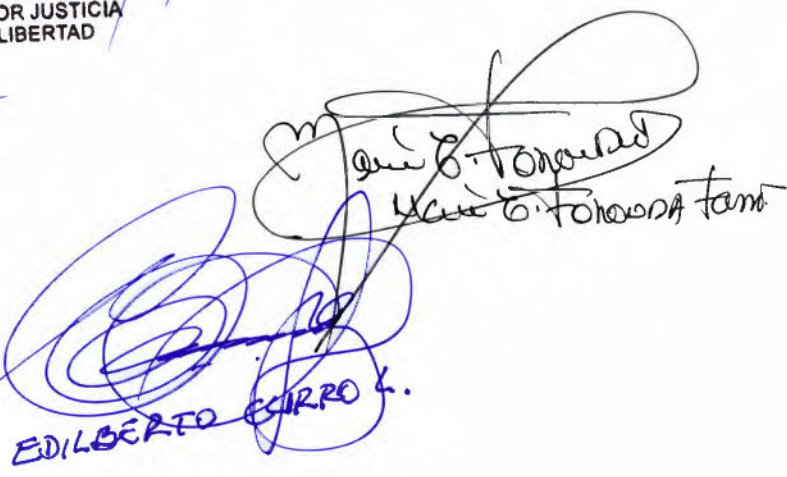 OR JUSTICIA
LIBERTAD
María G. Foronda
María G. Foronda Farro
EDILBERTO CURRO L.